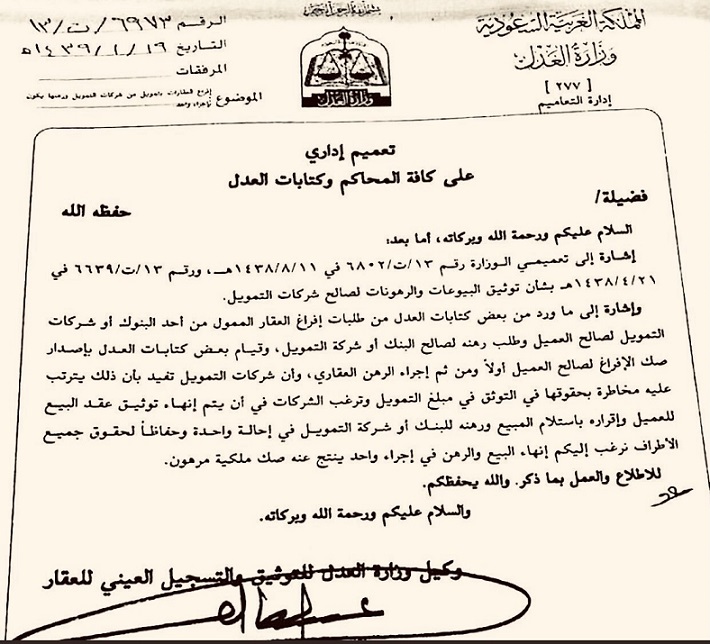 بسم الله الرحمن الرحيم
المملكة العربية السعودية
وزارة العدل
[ ٢٧٧ ]
إدارة التعاميم
وزارة العدل
الرقم ١٣/ت/٦٩٧٣
التاريخ ١٤٣٩/١/١٦هـ
المرفقات
الموضوع إفراغ العقارات بتمويل من شركات التمويل ورهنها يكون
بإجراء واحد
تعميم إداري
على كافة المحاكم وكتابات العدل
فضيلة/ حفظه الله
السلام عليكم ورحمة الله وبركاته، أما بعد:
إشارة إلى تعميمي الوزارة رقم ١٣/ت/٦٨٠٢ في ١٤٣٨/٨/١١هـ، ورقم ١٣/ت/٦٦٣٩ في
١٤٣٨/٤/٢١هـ بشأن توثيق البيوعات والرهونات لصالح شركات التمويل.
وإشارة إلى ما ورد من بعض كتابات العدل من طلبات إفراغ العقار الممول من أحد البنوك أو شركات
التمويل لصالح العميل وطلب رهنه لصالح البنك أو شركة التمويل، وقيام بعض كتابات العدل بإصدار
صك الإفراغ لصالح العميل أولاً ومن ثم إجراء الرهن العقاري، وأن شركات التمويل تفيد بأن ذلك يترتب
عليه مخاطرة بحقوقها في التوثق في مبلغ التمويل وترغب الشركات في أن يتم إنهاء توثيق عقد البيع
للعميل وإقراره باستلام المبيع ورهنه للبنك أو شركة التمويل في إحالة واحدة وحفاظاً لحقوق جميع
الأطراف نرغب إليكم إنهاء البيع والرهن في إجراء واحد ينتج عنه صك ملكية مرهون.
للاطلاع والعمل بما ذكر. والله يحفظكم.
والسلام عليكم ورحمة الله وبركاته.
وكيل وزارة العدل للتوثيق والتسجيل العيني للعقار